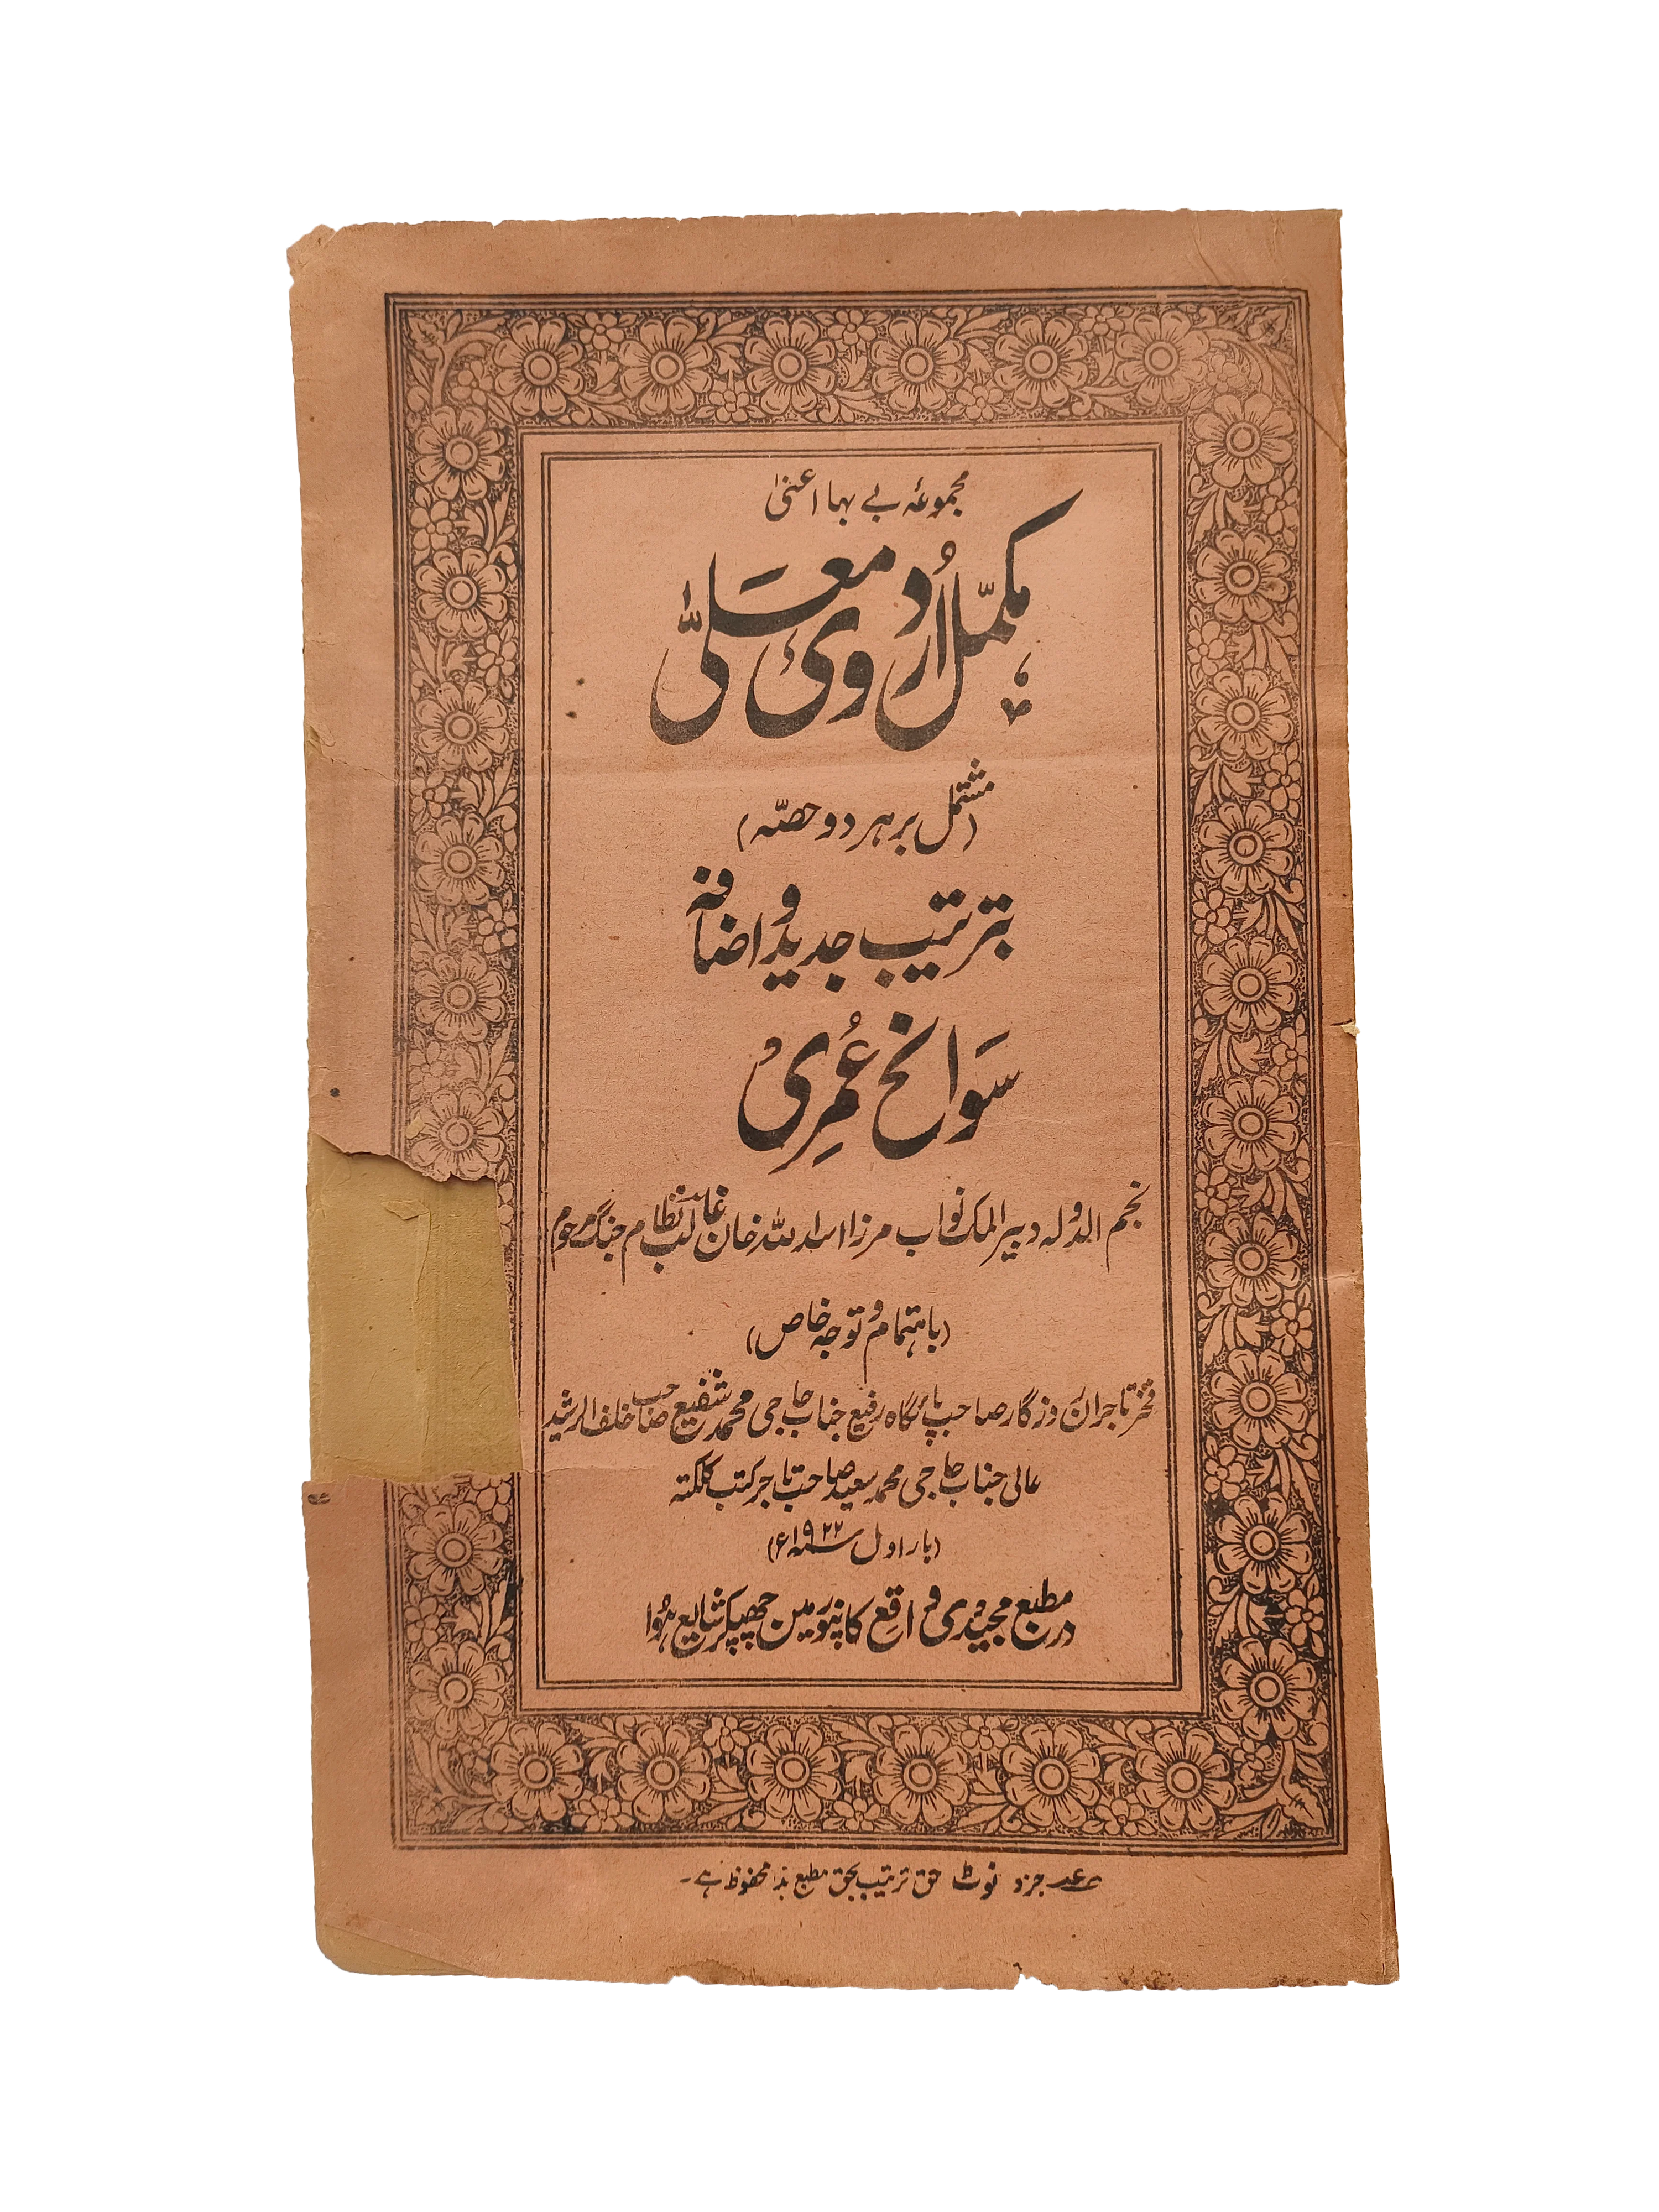 مجموعۂ بے بہا اعنی
مکمّل اُردوی معلّٰی
(مشتمل بر ہر دو حصّہ)
بترتیب جدید و اضافہ
سَوانح عُمرِی
نجم الدولہ دبیر الملک نواب مرزا اسد اللہ خان غالب نظام جنگ مرحوم
(باہتمام و توجہ خاص)
فخر تاجران روزگار صاحب پائگاہ رفیع جناب حاجی محمد شفیع صاحب خلف الرشید
عالی جناب حاجی محمد سعید صاحب تاجر کتب کلکتہ
(بار اول سنہ ۱۹۲۲ء)
در مطبع مجیدی واقع کانپور مین چھپکر شایع ہُوا
جزو نوٹ حق ترتیب بحق مطبع ہذا محفوظ ہے۔